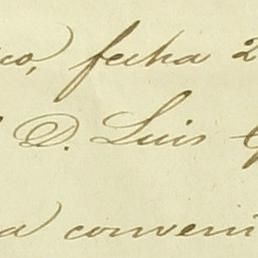 co, fecha 2
D. Luis
a conveni